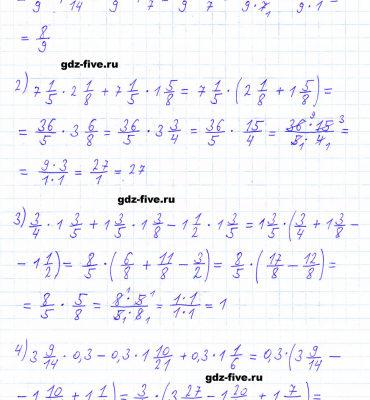 = 8/9
gdz-five.ru
2) 7 1/5 · 2 1/8 + 7 1/5 · 1 5/8 = 7 1/5 · (2 1/8 + 1 5/8) =
= 36/5 · 3 6/8 = 36/5 · 3 3/4 = 36/5 · 15/4 = 36⁹ · 15³/5₁ · 4₁ =
= 9·3/1·1 = 27/1 = 27
gdz-five.ru
3) 3/4 · 1 3/5 + 1 3/5 · 1 3/8 - 1 1/2 · 1 3/5 = 1 3/5 · (3/4 + 1 3/8 -
- 1 1/2) = 8/5 · (6/8 + 11/8 - 3/2) = 8/5 · (17/8 - 12/8) =
= 8/5 · 5/8 = 8¹ · 5¹/5₁ · 8₁ = 1·1/1·1 = 1
4) 3 9/14 · 0,3 - 0,3 · 1 10/21 + 0,3 · 1 1/6 = 0,3 · (3 9/14 -
gdz-five.ru